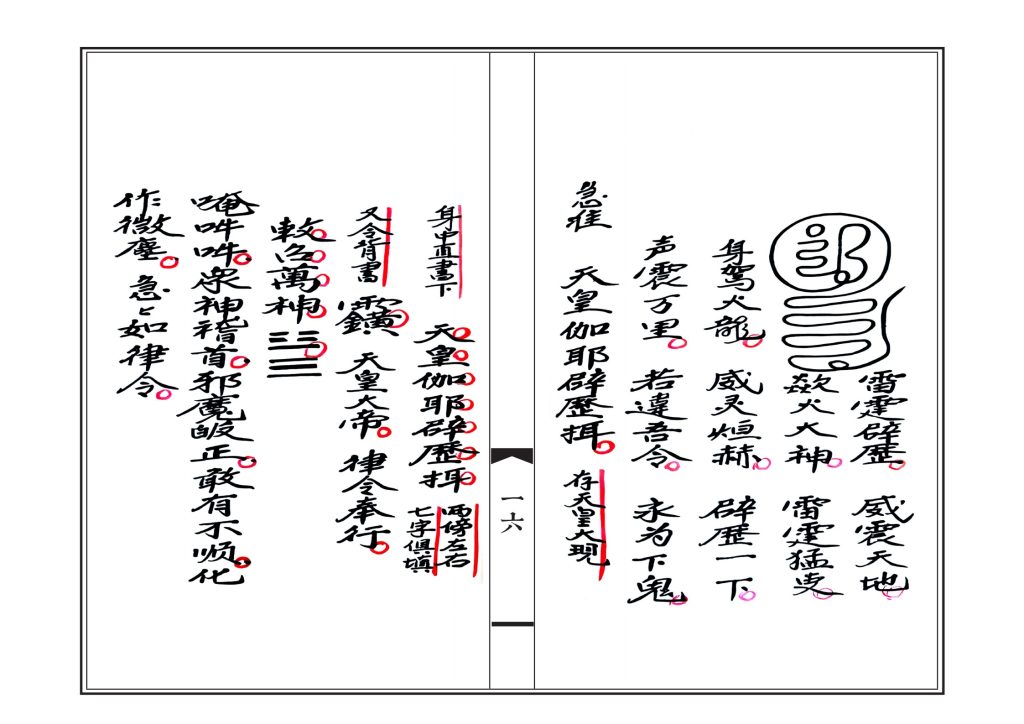 雷霆辟歷 威震天地
欻火大神 雷霆猛吏
身驾火龍 威灵烜赫 辟歷一下
声震万里 若違吾令 永为下鬼
急准 天皇伽耶辟歷挕 存天皇大現
一六
身中直書下 天皇伽耶辟歷挕 兩傍左右
七字俱填
又令背書 天皇大帝 律令奉行
敕召萬神
唵吽吽众神稽首邪魔皈正敢有不顺化
作微塵 急々如律令